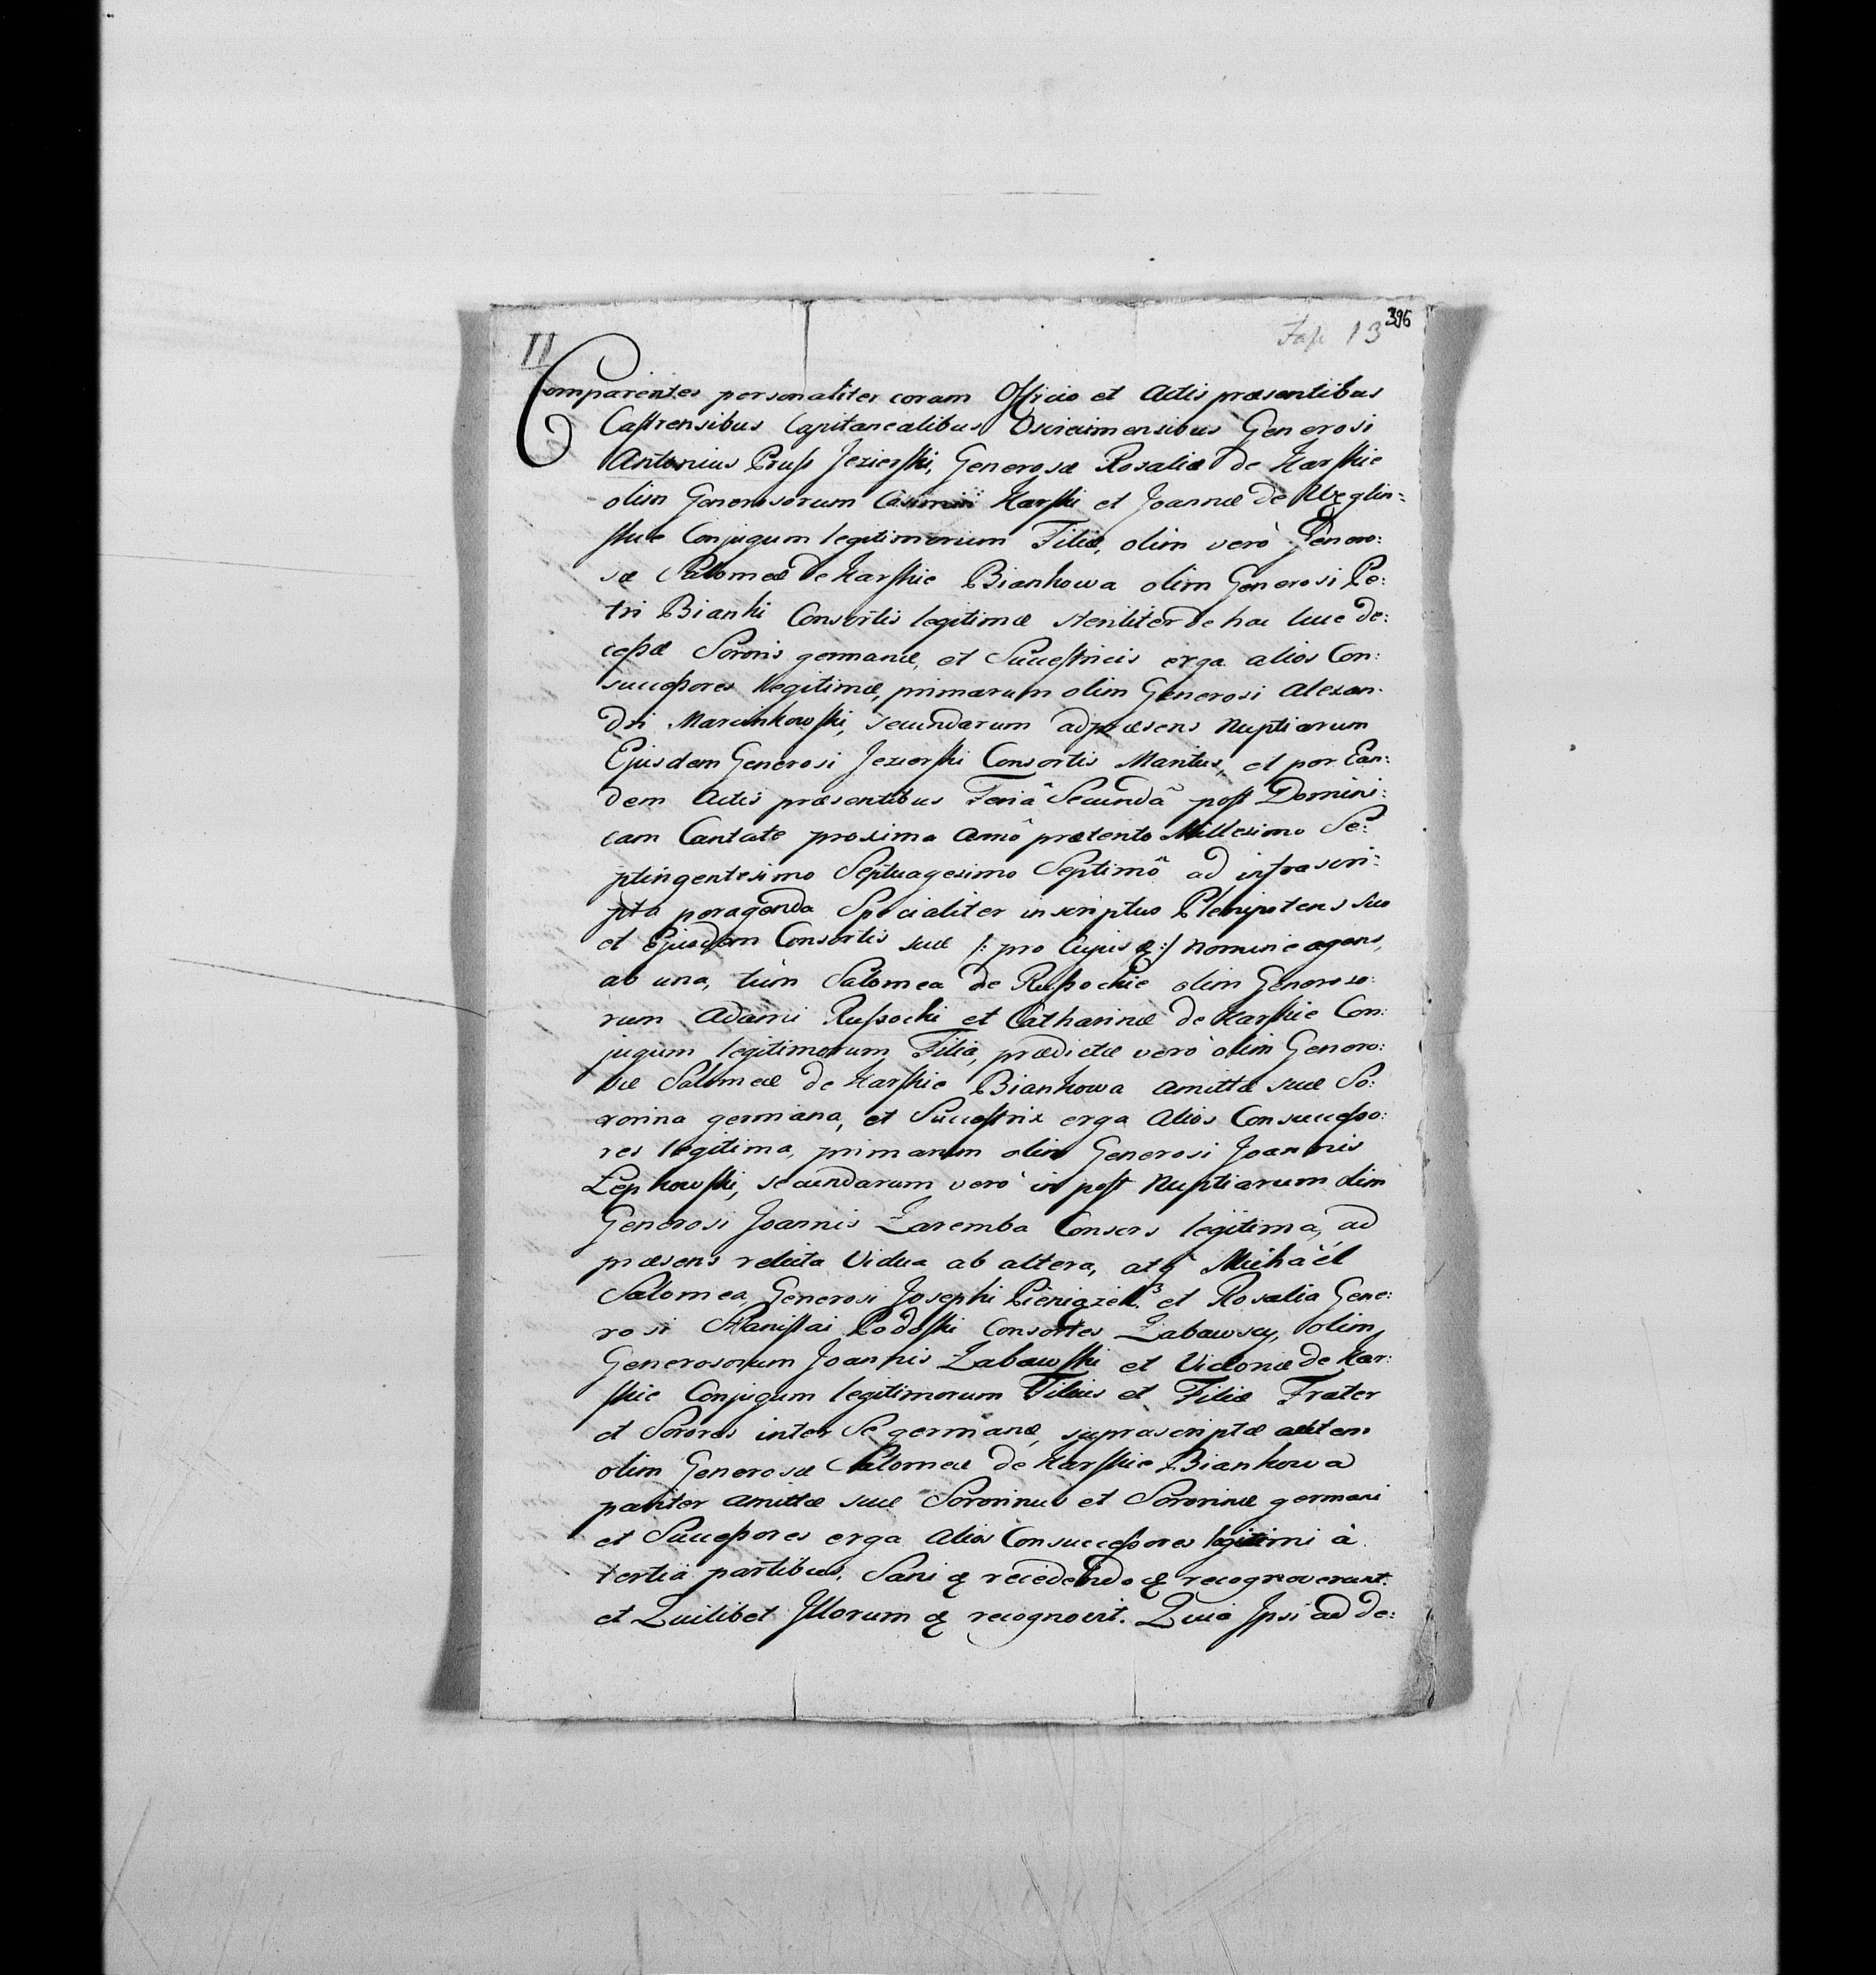 396
II
Fasc 13
Comparentes personaliter coram Officio et Actis præsentibus
Castrensibus Capitanealibus Osviecimensibus Generosi
Antonius Pruss Jezierski, Generosæ Rosaliæ de Karskie
olim Generosorum Casimiri Karski et Joannæ de Węglin:
skie Conjugum legitimorum Filiæ, olim verò Genero:
sæ Salomeæ de Karskie Biankowa olim Generosi Pe:
tri Bianki Consortis legitimæ steriliter de hac luce de:
cessæ Sororis germanæ, et Successtricis erga alios Con:
successores legitimæ, primarum olim Generosi Alexan:
dri Marcinkowski, secundarum adpræsens Nuptiarum
Ejusdem Generosi Jezierski Consortis Maritus, et per Ean:
dem Actis præsentibus Feriâ Secundâ post Domini:
cam Cantate proxima Annô prætento Millesimo Se:
ptingentesimo Septuagesimo Septimô ad infrascri:
pta peragenda Specialiter inscriptus Plenipotens suo
et Ejusdem Consortis suæ /: pro Cujus &:/ nomine agens,
ab una, tùm Salomea de Russockie olim Generoso:
rum Adami Russocki et Catharinæ de Karskie Con:
jugum legitimorum Filia, prædictæ verò olim Genero:
sæ Salomeæ de Karskie Biankowa Amittæ suæ So:
rorina germana, et Successtrix erga Alios Consuccesso:
res legitima, primarum olim Generosi Joannis
Lepkowski, secundarum verò in post Nuptiarum olim
Generosi Joannis Zaremba Consors legitima, ad
præsens relicta Vidua ab altera, atq Michaël
Salomea, Generosi Josephi Pieniązek et Rosalia Gene:
rosi Stanislai Podoski Consortes Żabawscy, olim
Generosorum Joannis Żabawski et Victoriæ de Kar:
skie Conjugum legitimorum Filius et Filiæ Frater
et Sorores inter Se germanæ, suprascriptæ autem
olim Generosæ Salomeæ de Karskie Biankowa
pariter Amittæ suæ Sororinus et Sororinæ germani
et Successores erga Alios Consuccessores legitimi à
tertia partibus, Sani & recedendo & recognoverunt.
et Quilibet Illorum & recognovit. Quia Ipsi ad de: